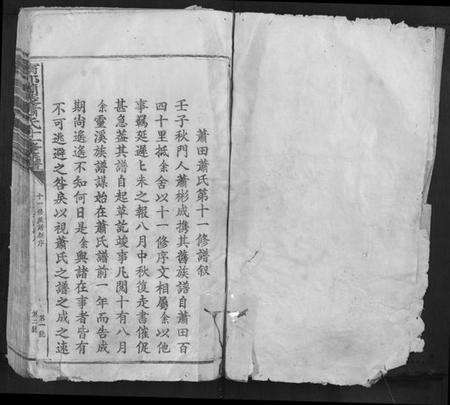 蕭田蕭氏第十一修譜叙
壬子秋門人蕭彬成携其舊族譜自蕭田百
四十里抵余舍以十一修序文相屬余以他
事羈延遲上未之報八月中秋復走書催促
甚急蓋其譜自起草訖竣事凡閱十有八月
余靈溪族譜謀始在蕭氏譜前一年而告成
期尚遙遙不知何日是余與諸在事者皆有
不可逃避之咎矣以視蕭氏之譜之成之速
十一修族譜序
第一號